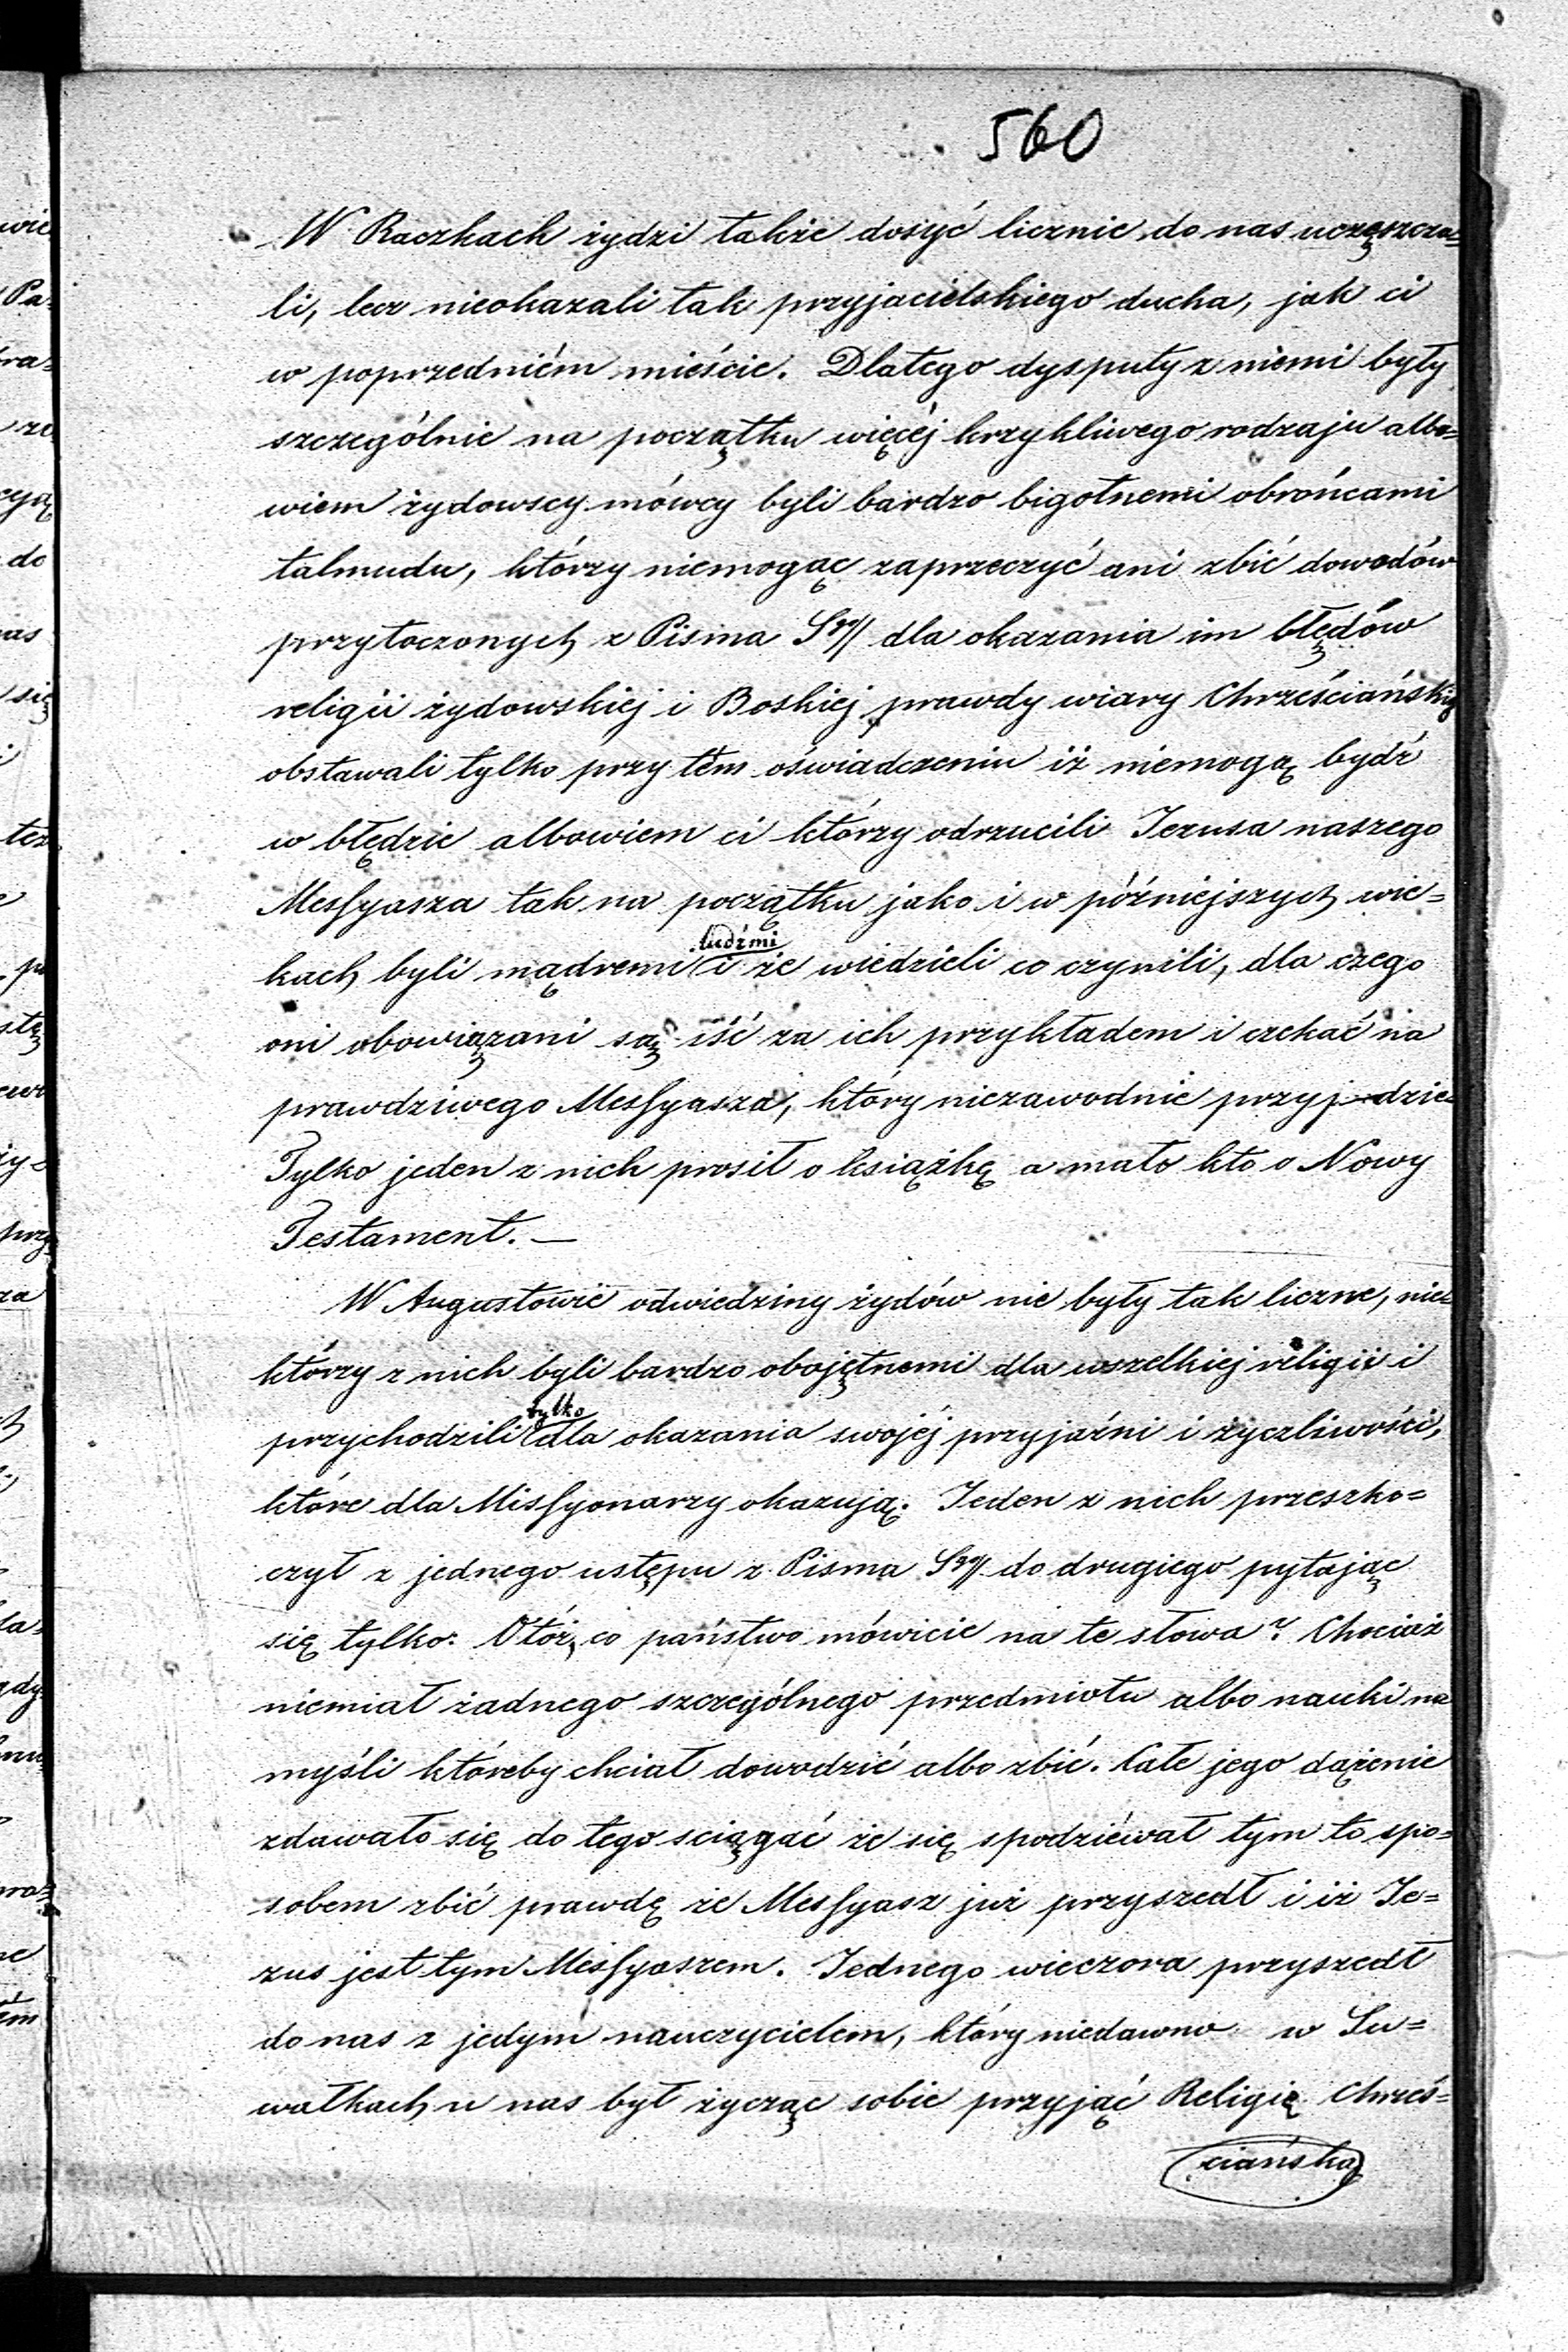 560
W Raczkach żydzi także dosyć licznie do nas uczęszcza=
li, lecz nieokazali tak przyjacielskiego ducha, jak ci
w poprzedniém mieście. Dlatego dysputy z niemi były
szczególnie na początku więcéj krzykliwego rodzaju albo=
wiem żydowscy mówcy byli bardzo bigotnemi obrońcami
talmudu, którzy niemogąc zaprzeczyć ani zbić dowodów
przytoczonych z Pisma Sgo// dla okazania im błędów
religii żydowskiej i Boskiej prawdy wiary Chrześciańskiej
obstawali tylko przy tém oświadczeniu iż niemogą bydź
w błędzie albowiem ci którzy odrzucili Jezusa naszego
Messyasza tak na początku jako i w późniejszych wie=
kach byli mądremi ludźmi i że wiedzieli co czynili, dla czego
oni obowiązani są iść za ich przykładem i czekać na
prawdziwego Messyasza, który niezawodnie przyjdzie.
Tylko jeden z nich prosił o książkę a mało kto o Nowy
Testament. —
W Augustowie odwiedziny żydów nie były tak liczne, nie=
którzy z nich byli bardzo obojętnemi dla wszelkiej religii i
przychodzili tylko dla okazania swojéj przyjaźni i życzliwości,
które dla Missyonarzy okazują. Jeden z nich przeszko=
czył z jednego ustępu z Pisma Sgo// do drugiego pytając
się tylko: Otóż, co państwo mówicie na te słowa? Chociaż
niemiał żadnego szczególnego przedmiotu albo nauki na
myśli któreby chciał dowodzić albo zbić. Całe jego dążenie
zdawało się do tego sciągać że się spodziéwał tym to spo=
sobem zbić prawdę że Messyasz już przyszedł i iż Je=
zus jest tym Messyaszem. Jednego wieczora przyszedł
do nas z jedym nauczycielem, który niedawno w Su=
wałkach u nas był życząc sobie przyjąć Religię Chrześ=
ciańską